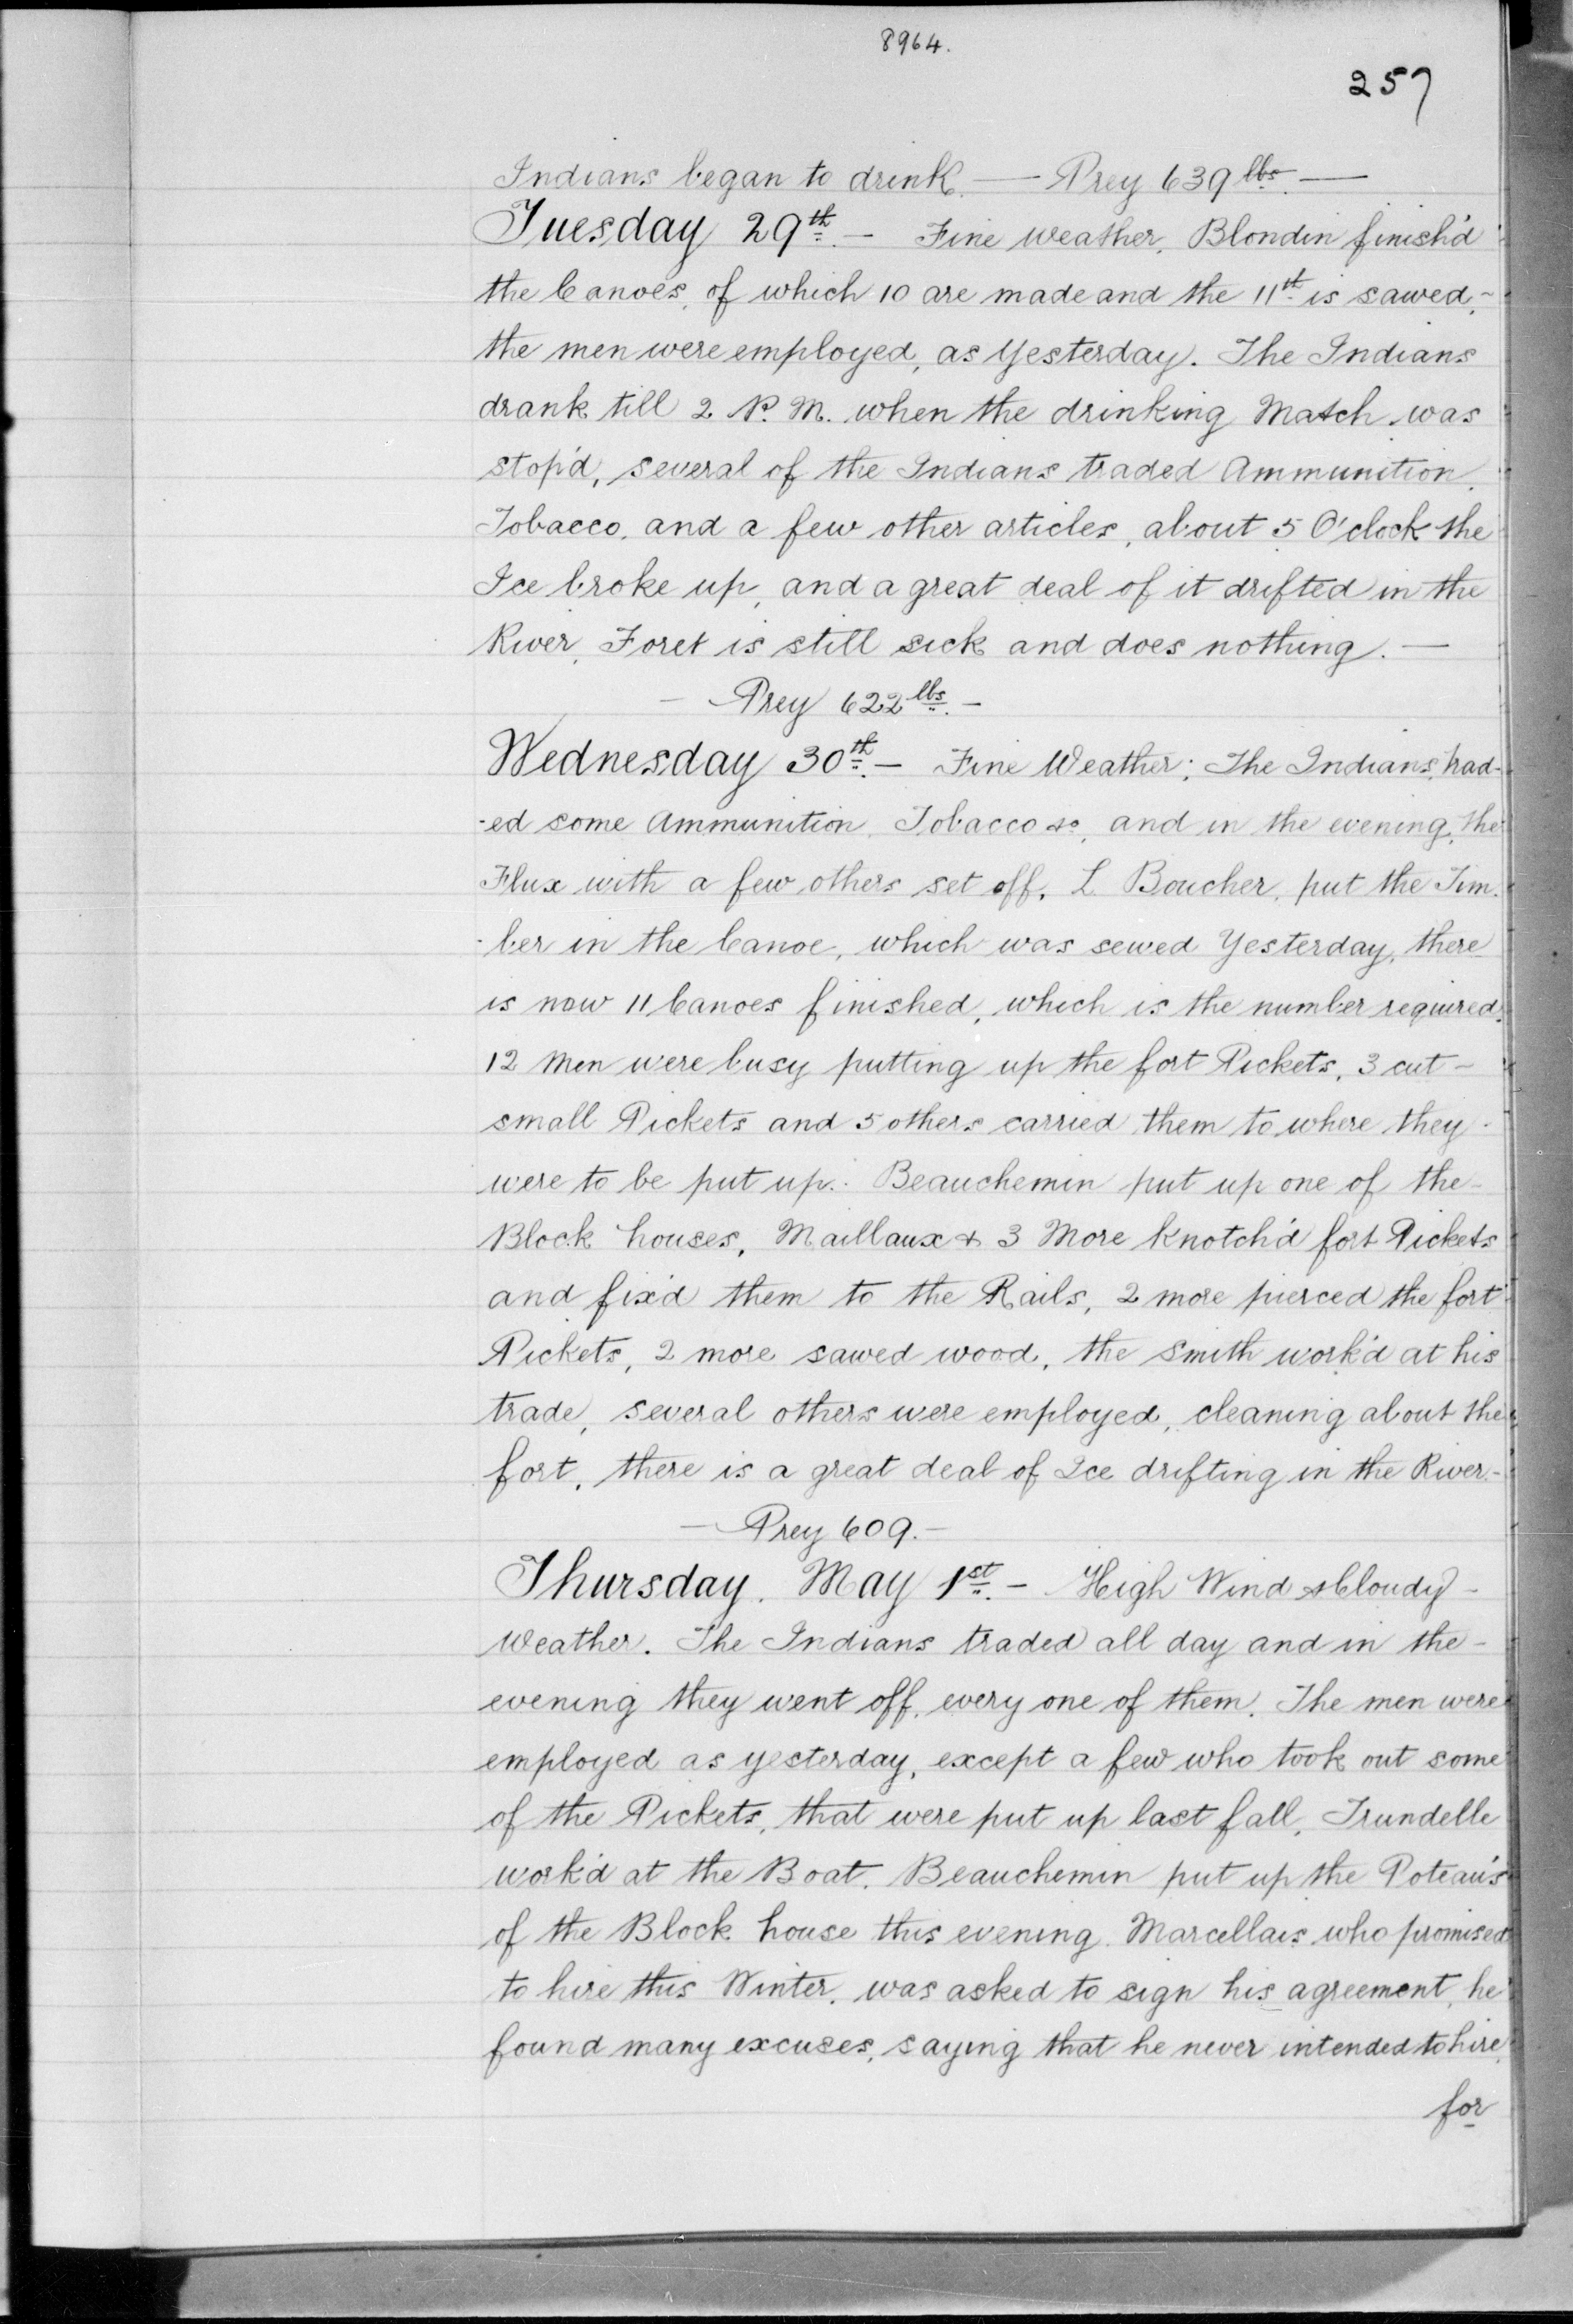 8964.
257
Indians began to drink. — Prey 639 lbs. —
Tuesday 29th. — Fine weather, Blondin finish'd
the Canoes, of which 10 are made and the 11th is sawed, -
the men were employed, as Yesterday. The Indians
drank till 2 P. M. when the drinking Match was
stop'd, several of the Indians traded Ammunition,
Tobacco, and a few other articles, about 5 O'clock the
Ice broke up, and a great deal of it drifted in the
River, Foret is still sick and does nothing. —
— Prey 622 lbs. —
Wednesday 30th. — Fine Weather; The Indians trad-
-ed some Ammunition, Tobacco &c, and in the evening, the
Flux with a few others set off, L. Boucher, put the Tim-
-ber in the Canoe, which was sewed Yesterday, there
is now 11 Canoes finished, which is the number required.
12 Men were busy putting up the fort Pickets, 3 cut -
small Pickets and 5 others carried them to where they -
were to be put up. Beauchemin put up one of the -
Block houses, Maillaux & 3 More knotch'd fort Pickets
and fix'd them to the Rails, 2 more pierced the fort
Pickets, 2 more sawed wood, the Smith work'd at his
trade, several others were employed, cleaning about the
fort, there is a great deal of Ice drifting in the River. -
— Prey 609. —
Thursday. May 1st. — High Wind & Cloudy -
Weather. The Indians traded all day and in the -
evening they went off, every one of them. The men were
employed as yesterday, except a few who took out some
of the Pickets, that were put up last fall, Trundelle
work'd at the Boat. Beauchemin put up the Poteau's
of the Block house this evening. Marcellais who promised
to hire this Winter, was asked to sign his agreement, he
found many excuses, saying that he never intended to hire,
for